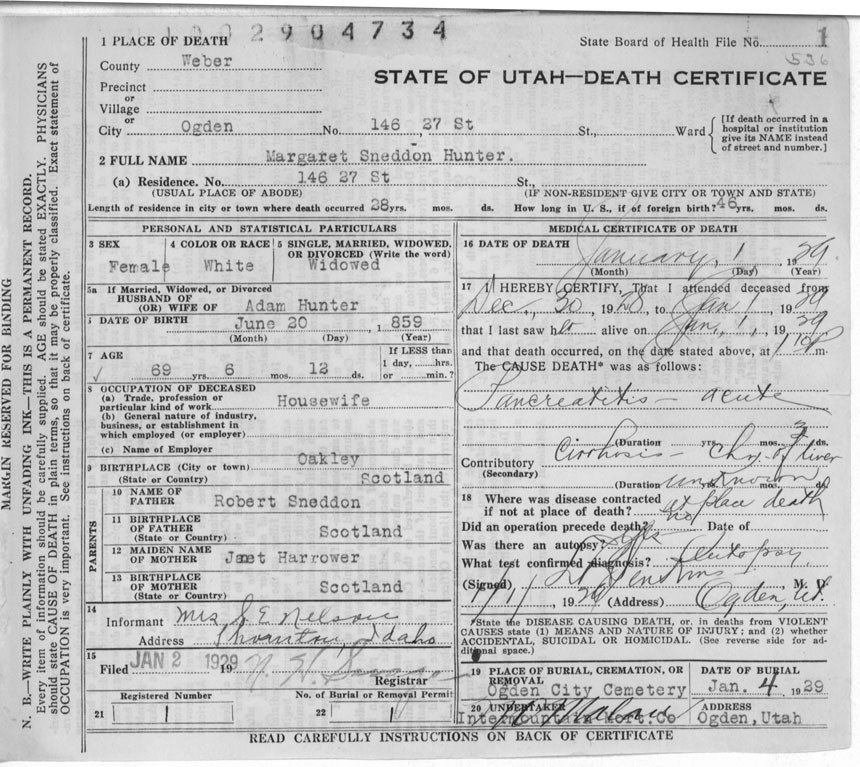 2904734
1 PLACE OF DEATH
State Board of Health File No. 1
536
County Weber
STATE OF UTAH—DEATH CERTIFICATE
Precinct
or
Village
or
City Ogden No. 146 27 St St., Ward
[If death occurred in a
hospital or institution
give its NAME instead
of street and number.]
2 FULL NAME Margaret Sneddon Hunter.
(a) Residence. No. 146 27 St St.,
(USUAL PLACE OF ABODE) (IF NON-RESIDENT GIVE CITY OR TOWN AND STATE)
Length of residence in city or town where death occurred 28 yrs. mos. ds. How long in U. S., if of foreign birth? 46 yrs. mos. ds.
PERSONAL AND STATISTICAL PARTICULARS
3 SEX
Female
4 COLOR OR RACE
White
5 SINGLE, MARRIED, WIDOWED,
OR DIVORCED (Write the word)
Widowed
5a If Married, Widowed, or Divorced
HUSBAND OF
(OR) WIFE OF Adam Hunter
6 DATE OF BIRTH June 20 , 1859
(Month) (Day) (Year)
7 AGE
69 yrs. 6 mos. 12 ds.
If LESS than
1 day, ......hrs.
or ......min.?
8 OCCUPATION OF DECEASED
(a) Trade, profession or
particular kind of work Housewife
(b) General nature of industry,
business, or establishment in
which employed (or employer)
(c) Name of Employer
9 BIRTHPLACE (City or town) Oakley
(State or Country) Scotland
PARENTS
10 NAME OF
FATHER Robert Sneddon
11 BIRTHPLACE
OF FATHER Scotland
(State or Country)
12 MAIDEN NAME
OF MOTHER Janet Harrower
13 BIRTHPLACE
OF MOTHER Scotland
(State or Country)
14
Informant Mrs S E Nelson
Address Thornton, Idaho
15
Filed JAN 2 1929 19
Registrar
Registered Number
21 1
No. of Burial or Removal Permit
22 1
MEDICAL CERTIFICATE OF DEATH
16 DATE OF DEATH January, 1, 1929
(Month) (Day) (Year)
17 I HEREBY CERTIFY, That I attended deceased from
Dec, 30, 1928, to Jan 1, 1929
that I last saw her alive on Jan, 1, 1929
and that death occurred, on the date stated above, at 1 10 P m.
The CAUSE DEATH* was as follows:
Pancreatitis — acute
(Duration yrs. mos. 3 ds.
Contributory Cirrhosis — Chr. of liver
(Secondary)
(Duration unknown yrs. mos. ds.
18 Where was disease contracted
if not at place of death? at place death
Did an operation precede death? no Date of
Was there an autopsy? Yes
What test confirmed diagnosis? Autopsy
(Signed) Jenkins M. D.
1/1, 1929 (Address) Ogden, Ut.
*State the DISEASE CAUSING DEATH, or, in deaths from VIOLENT
CAUSES state (1) MEANS AND NATURE OF INJURY; and (2) whether
ACCIDENTAL, SUICIDAL OR HOMICIDAL. (See reverse side for ad-
ditional space.)
19 PLACE OF BURIAL, CREMATION, OR
REMOVAL
Ogden City Cemetery
DATE OF BURIAL
Jan. 4, 1929
20 UNDERTAKER
Intermountain Mort. Co
ADDRESS
Ogden, Utah
READ CAREFULLY INSTRUCTIONS ON BACK OF CERTIFICATE
MARGIN RESERVED FOR BINDING
N. B.—WRITE PLAINLY WITH UNFADING INK—THIS IS A PERMANENT RECORD.
Every item of information should be carefully supplied. AGE should be stated EXACTLY. PHYSICIANS
should state CAUSE OF DEATH in plain terms, so that it may be properly classified. Exact statement of
OCCUPATION is very important. See instructions on back of certificate.